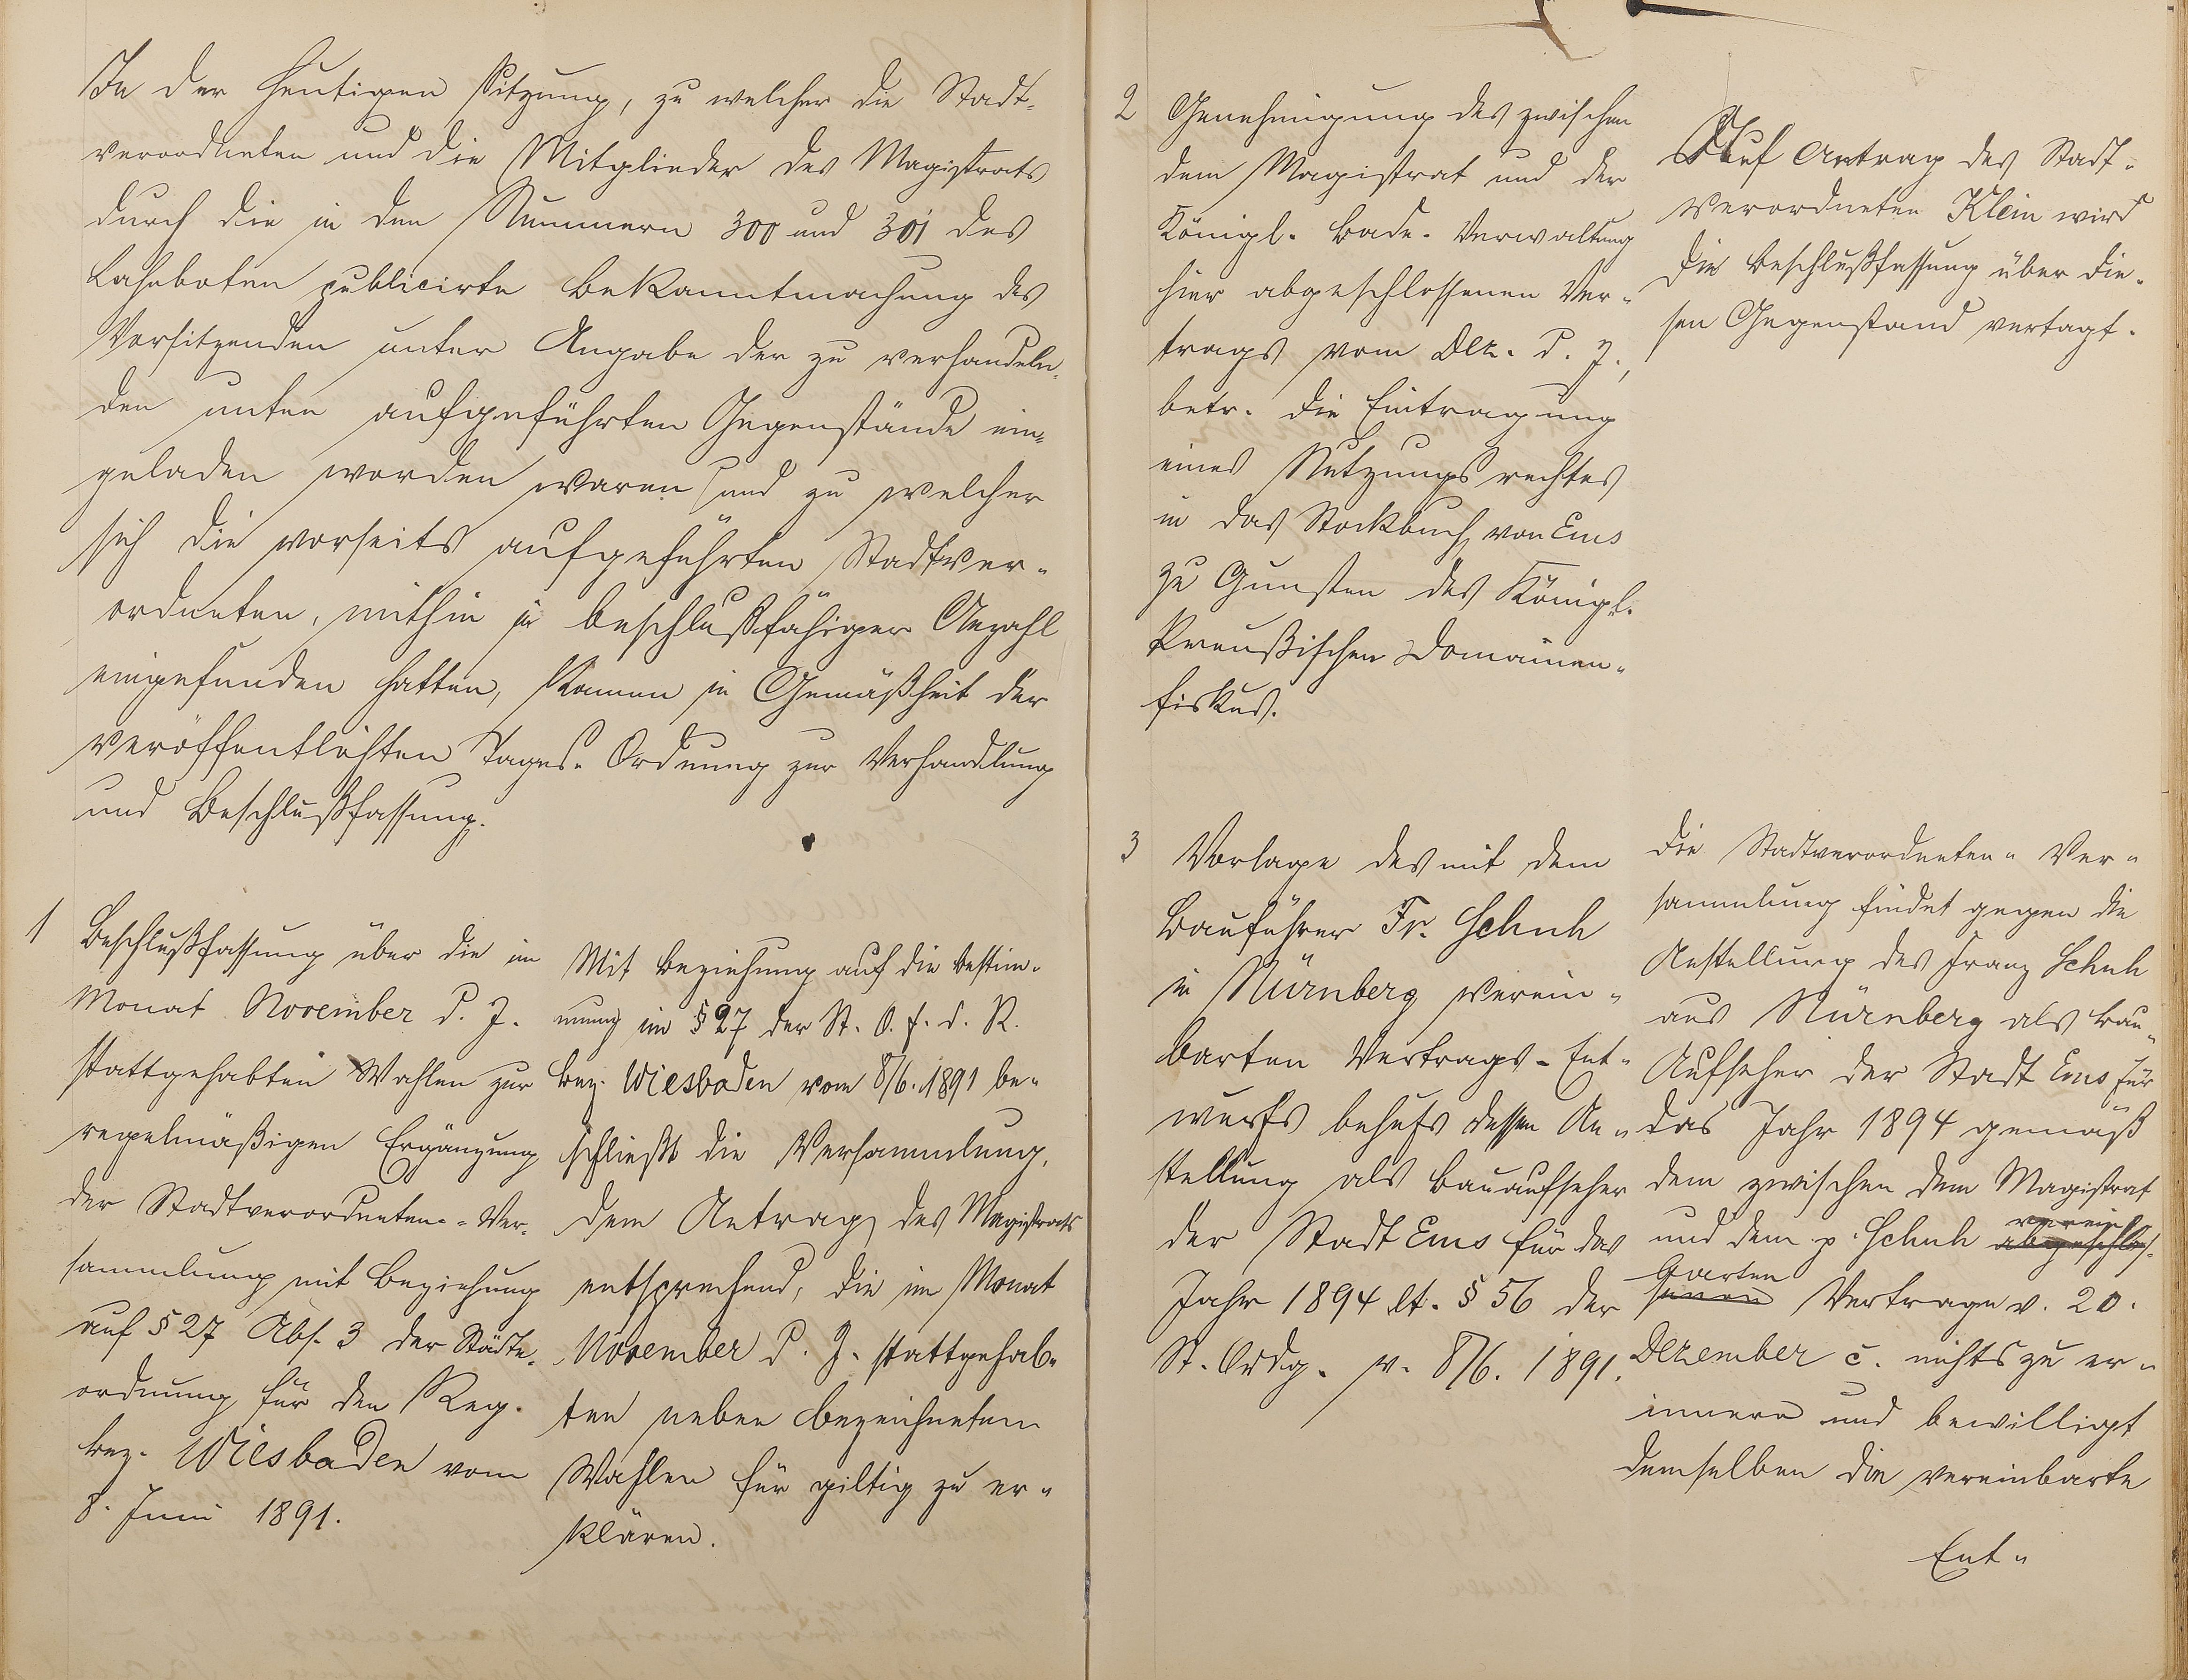 In der heutigen Sitzung, zu welcher die Stadt-
verordneten und die Mitglieder des Magistrats
durch die in den Nummern 300 und 301 des
Lahnboten publicirte Bekanntmachung des
Vorsitzenden unter Angabe der zu verhandeln-
den unten aufgeführten Gegenstände ein-
geladen worden waren und zu welcher
sich die vorseits aufgeführten Stadtver-
ordneten, mithin in beschlußfähiger Anzahl
eingefunden hatten, kamen in Gemäßheit der
veröffentlichten Tages-Ordnung zur Verhandlung
und Beschlußfassung.
1 Beschlußfassung über die im
Monat November d. J.
stattgehabten Wahlen zur
regelmäßigen Ergänzung
der Stadtverordneten-Ver-
sammlung mit Beziehung
auf § 27 Abs. 3 der Städte-
ordnung für den Reg.
Bez. Wiesbaden vom
8. Juni 1891.
Mit Beziehung auf die Bestim-
mung im § 27 der St. O. f. d. R.
Bez. Wiesbaden vom 8/6. 1891 be-
schließt die Versammlung,
dem Antrag des Magistrats
entsprechend, die im Monat
November d. J. stattgehab-
ten neben bezeichneten
Wahlen für giltig zu er-
klären.
2 Genehmigung des zwischen
dem Magistrat und der
Königl. Bade-Verwaltung
hier abgeschlossenen Ver-
trags vom Dez. d. J.,
betr. die Eintragung
eines Nutzungsrechtes
in das Stockbuch von Ems
zu Gunsten des Königl.
Preußischen Domainen-
fiskus.
Auf Antrag des Stadt-
verordneten Klein wird
die Beschlußfassung über die-
sen Gegenstand vertagt.
3 Vorlage des mit dem
Bauführer Fr. Schuh
in Nürnberg verein-
barten Vertrags-Ent-
wurfs behufs dessen An-
stellung als Bauaufseher
der Stadt Ems für das
Jahr 1894 lt. § 56 der
St. Ordg. v. 8/6. 1891.
Die Stadtverordneten-Ver-
sammlung findet gegen die
Anstellung des Franz Schuh
aus Nürnberg als Bau-
Aufseher der Stadt Ems für
das Jahr 1894 gemäß
dem zwischen dem Magistrat
verein
und dem p. Schuh abgeschlos-
barten
senen Vertrage v. 20.
Dezember c. nichts zu er-
innern und bewilligt
demselben die vereinbarte
Ent-